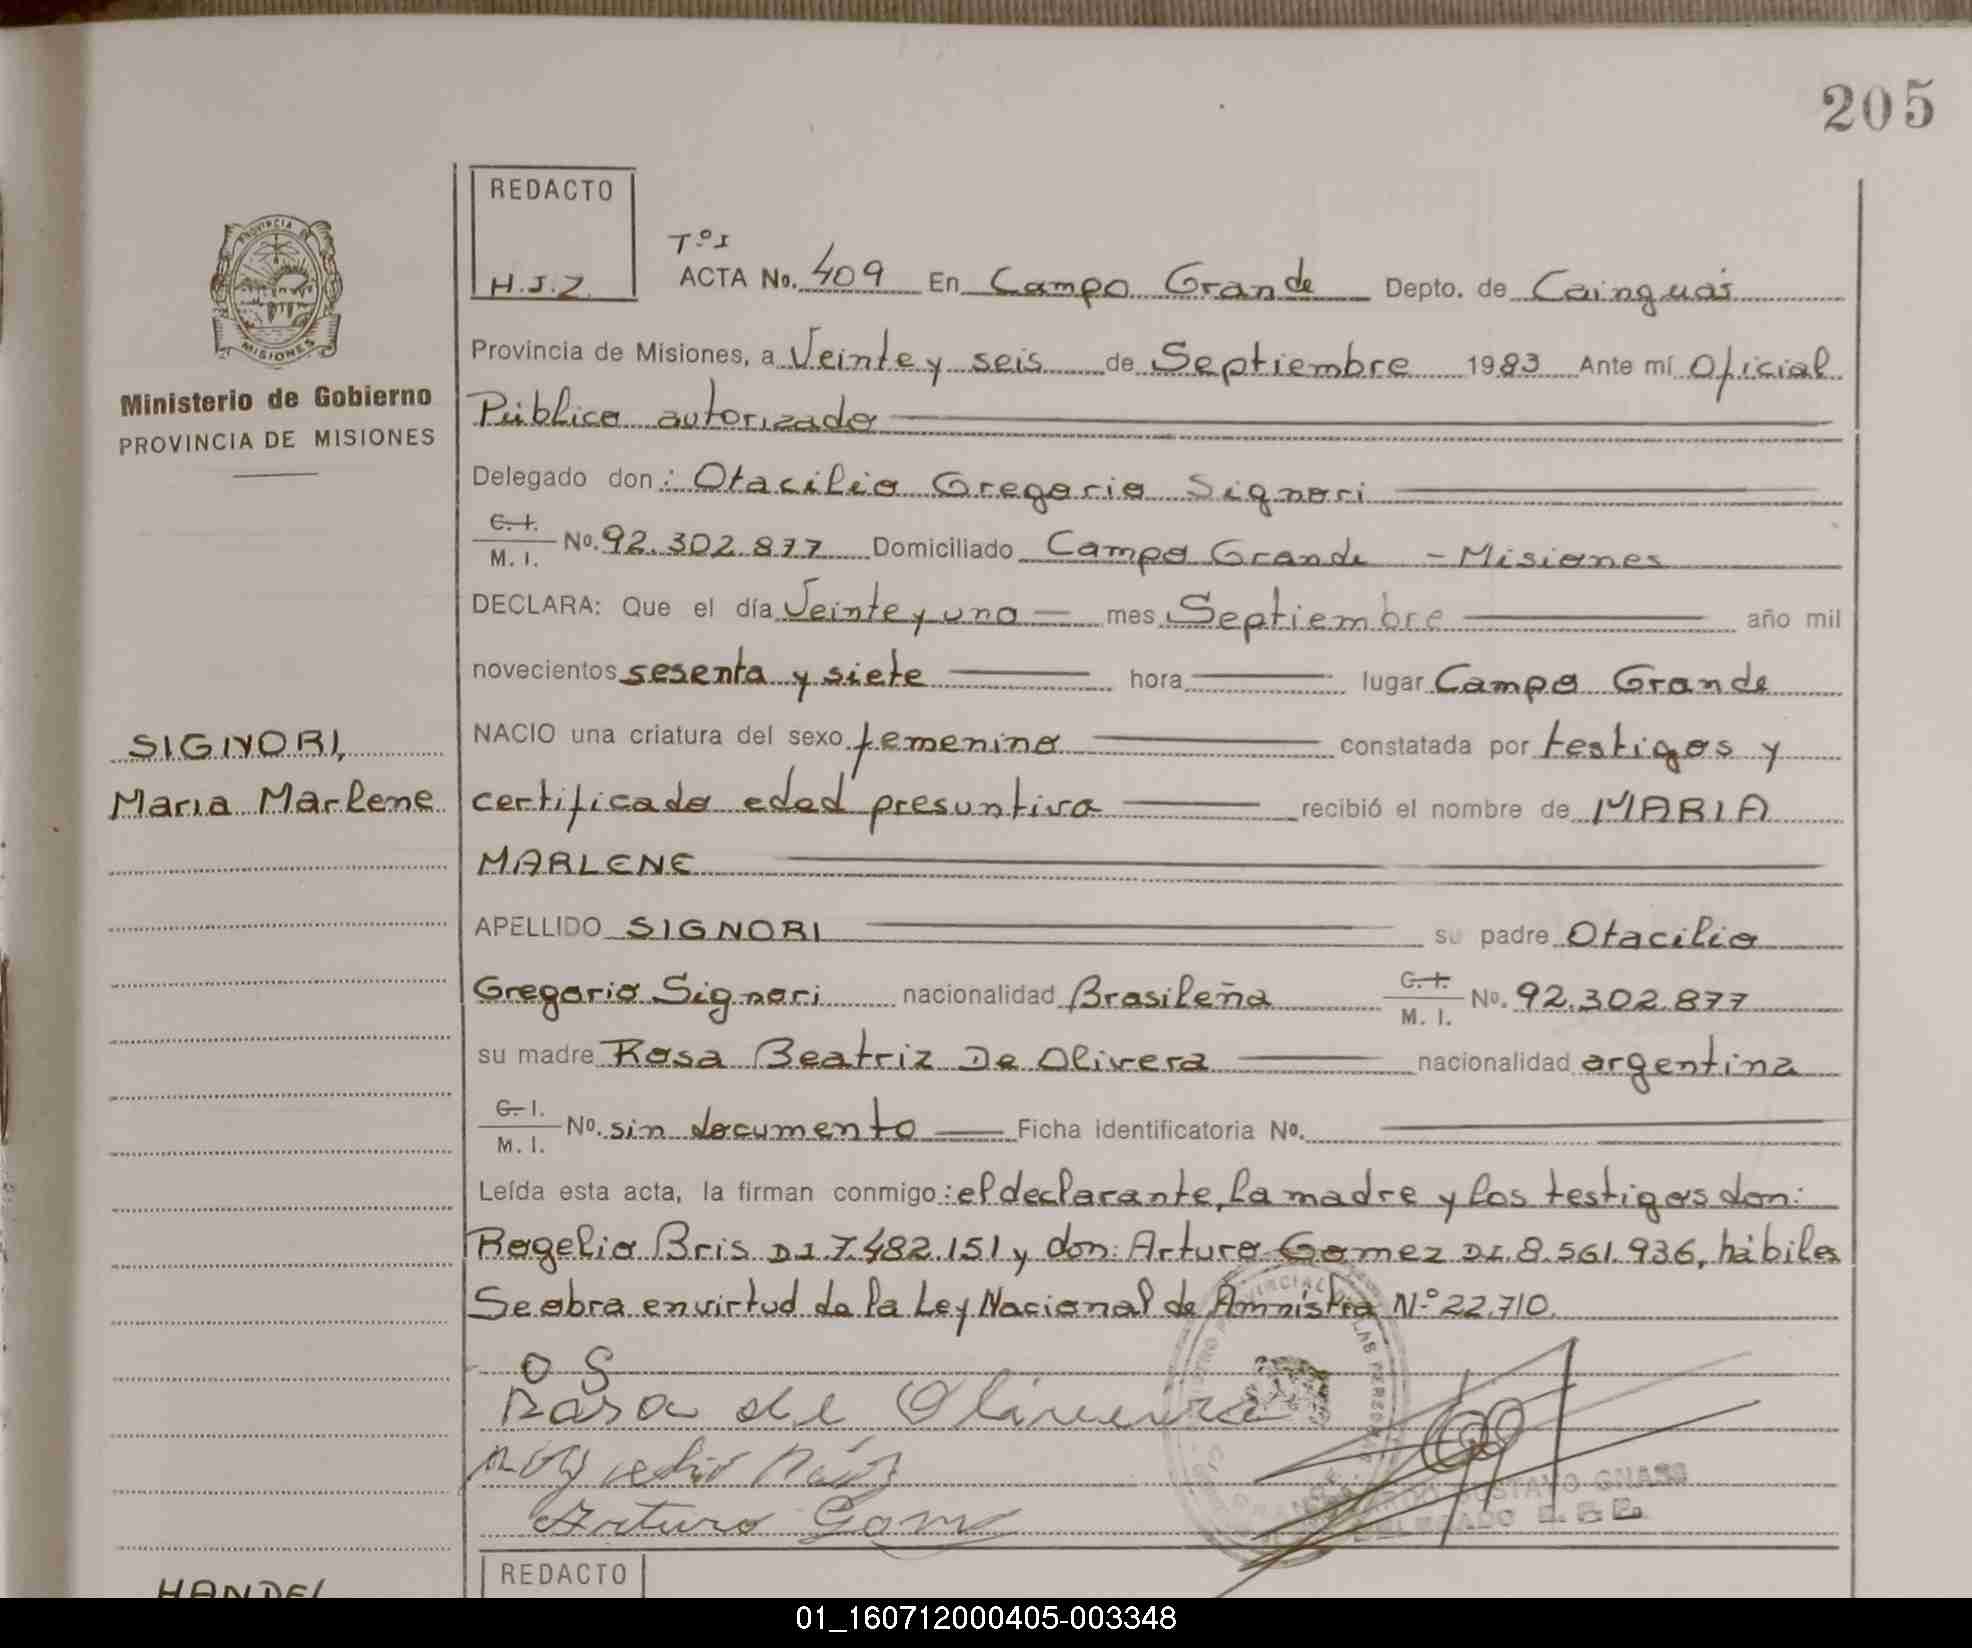 205
REDACTO
H.J.Z.
Tº I
ACTA No. 409 En Campo Grande Depto. de Cainguás
PROVINCIA DE
MISIONES
Ministerio de Gobierno
PROVINCIA DE MISIONES
Provincia de Misiones, a Veinte y seis de Septiembre 1983 Ante mí Oficial
Público autorizado
Delegado don: Otacilio Gregorio Signori
C. I.
M. I. No. 92.302.877 Domiciliado Campo Grande - Misiones
DECLARA: Que el día Veinte y uno mes Septiembre año mil
novecientos sesenta y siete hora lugar Campo Grande
SIGNORI,
Maria Marlene
NACIO una criatura del sexo femenino constatada por testigos y
certificado edad presuntiva recibió el nombre de MARIA
MARLENE
APELLIDO SIGNORI su padre Otacilio
Gregorio Signori nacionalidad Brasileña C. I. M. I. No. 92.302.877
su madre Rosa Beatriz De Olivera nacionalidad argentina
C. I.
M. I. No. sin documento Ficha identificatoria No.
Leída esta acta, la firman conmigo: el declarante, la madre y los testigos don:
Rogelio Bris DI 7.482.151 y don: Arturo Gomez DI. 8.561.936, hábiles
Se obra en virtud de la Ley Nacional de Amnistia Nº 22.710.
O S
Rosa de Oliveira
Arturo Gome
GUSTAVO
DELEGADO
REDACTO
01_160712000405-003348